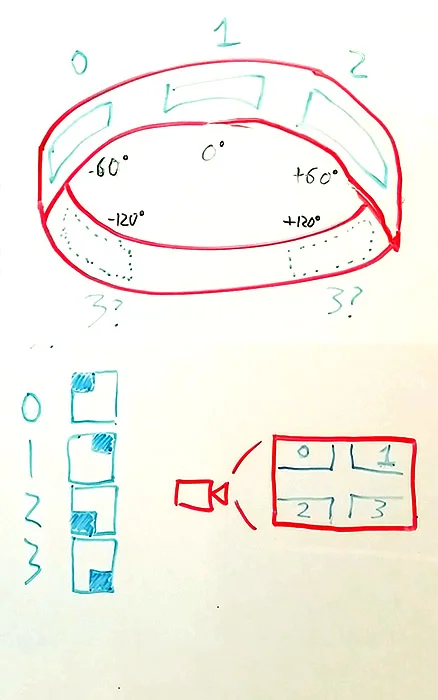 0 1 2
-60° 0° +60°
-120° +120°
3? 3?
0
1
2
3
0 1
2 3